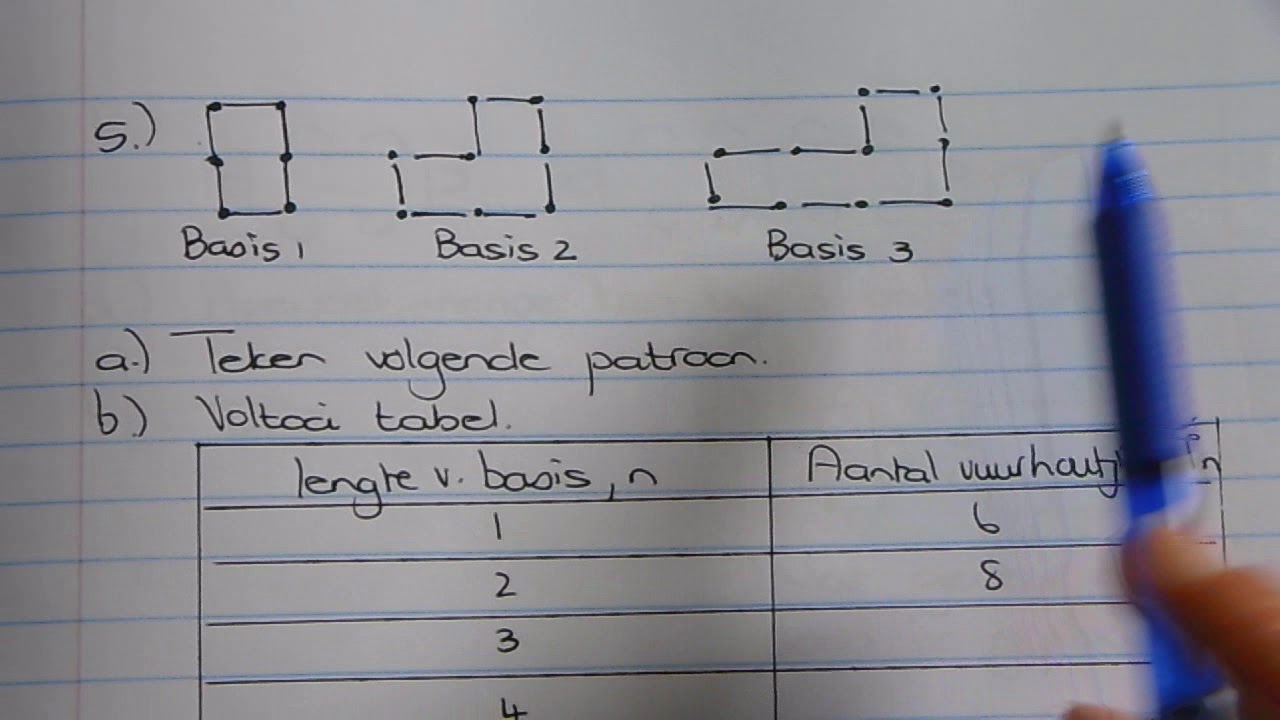 5.)
Basis 1 Basis 2 Basis 3
a.) Teken volgende patroon.
b.) Voltooi tabel.
lengte v. basis, n Aantal
1 6
2 8
3
4